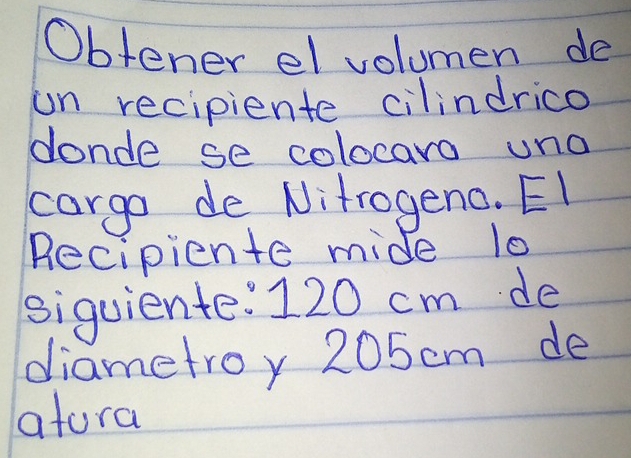 Obtener el volumen de
un recipiente cilindrico
donde se colocara una
carga de Nitrogeno. El
Recipiente mide lo
siguiente: 120 cm de
diametro y 205cm de
atura